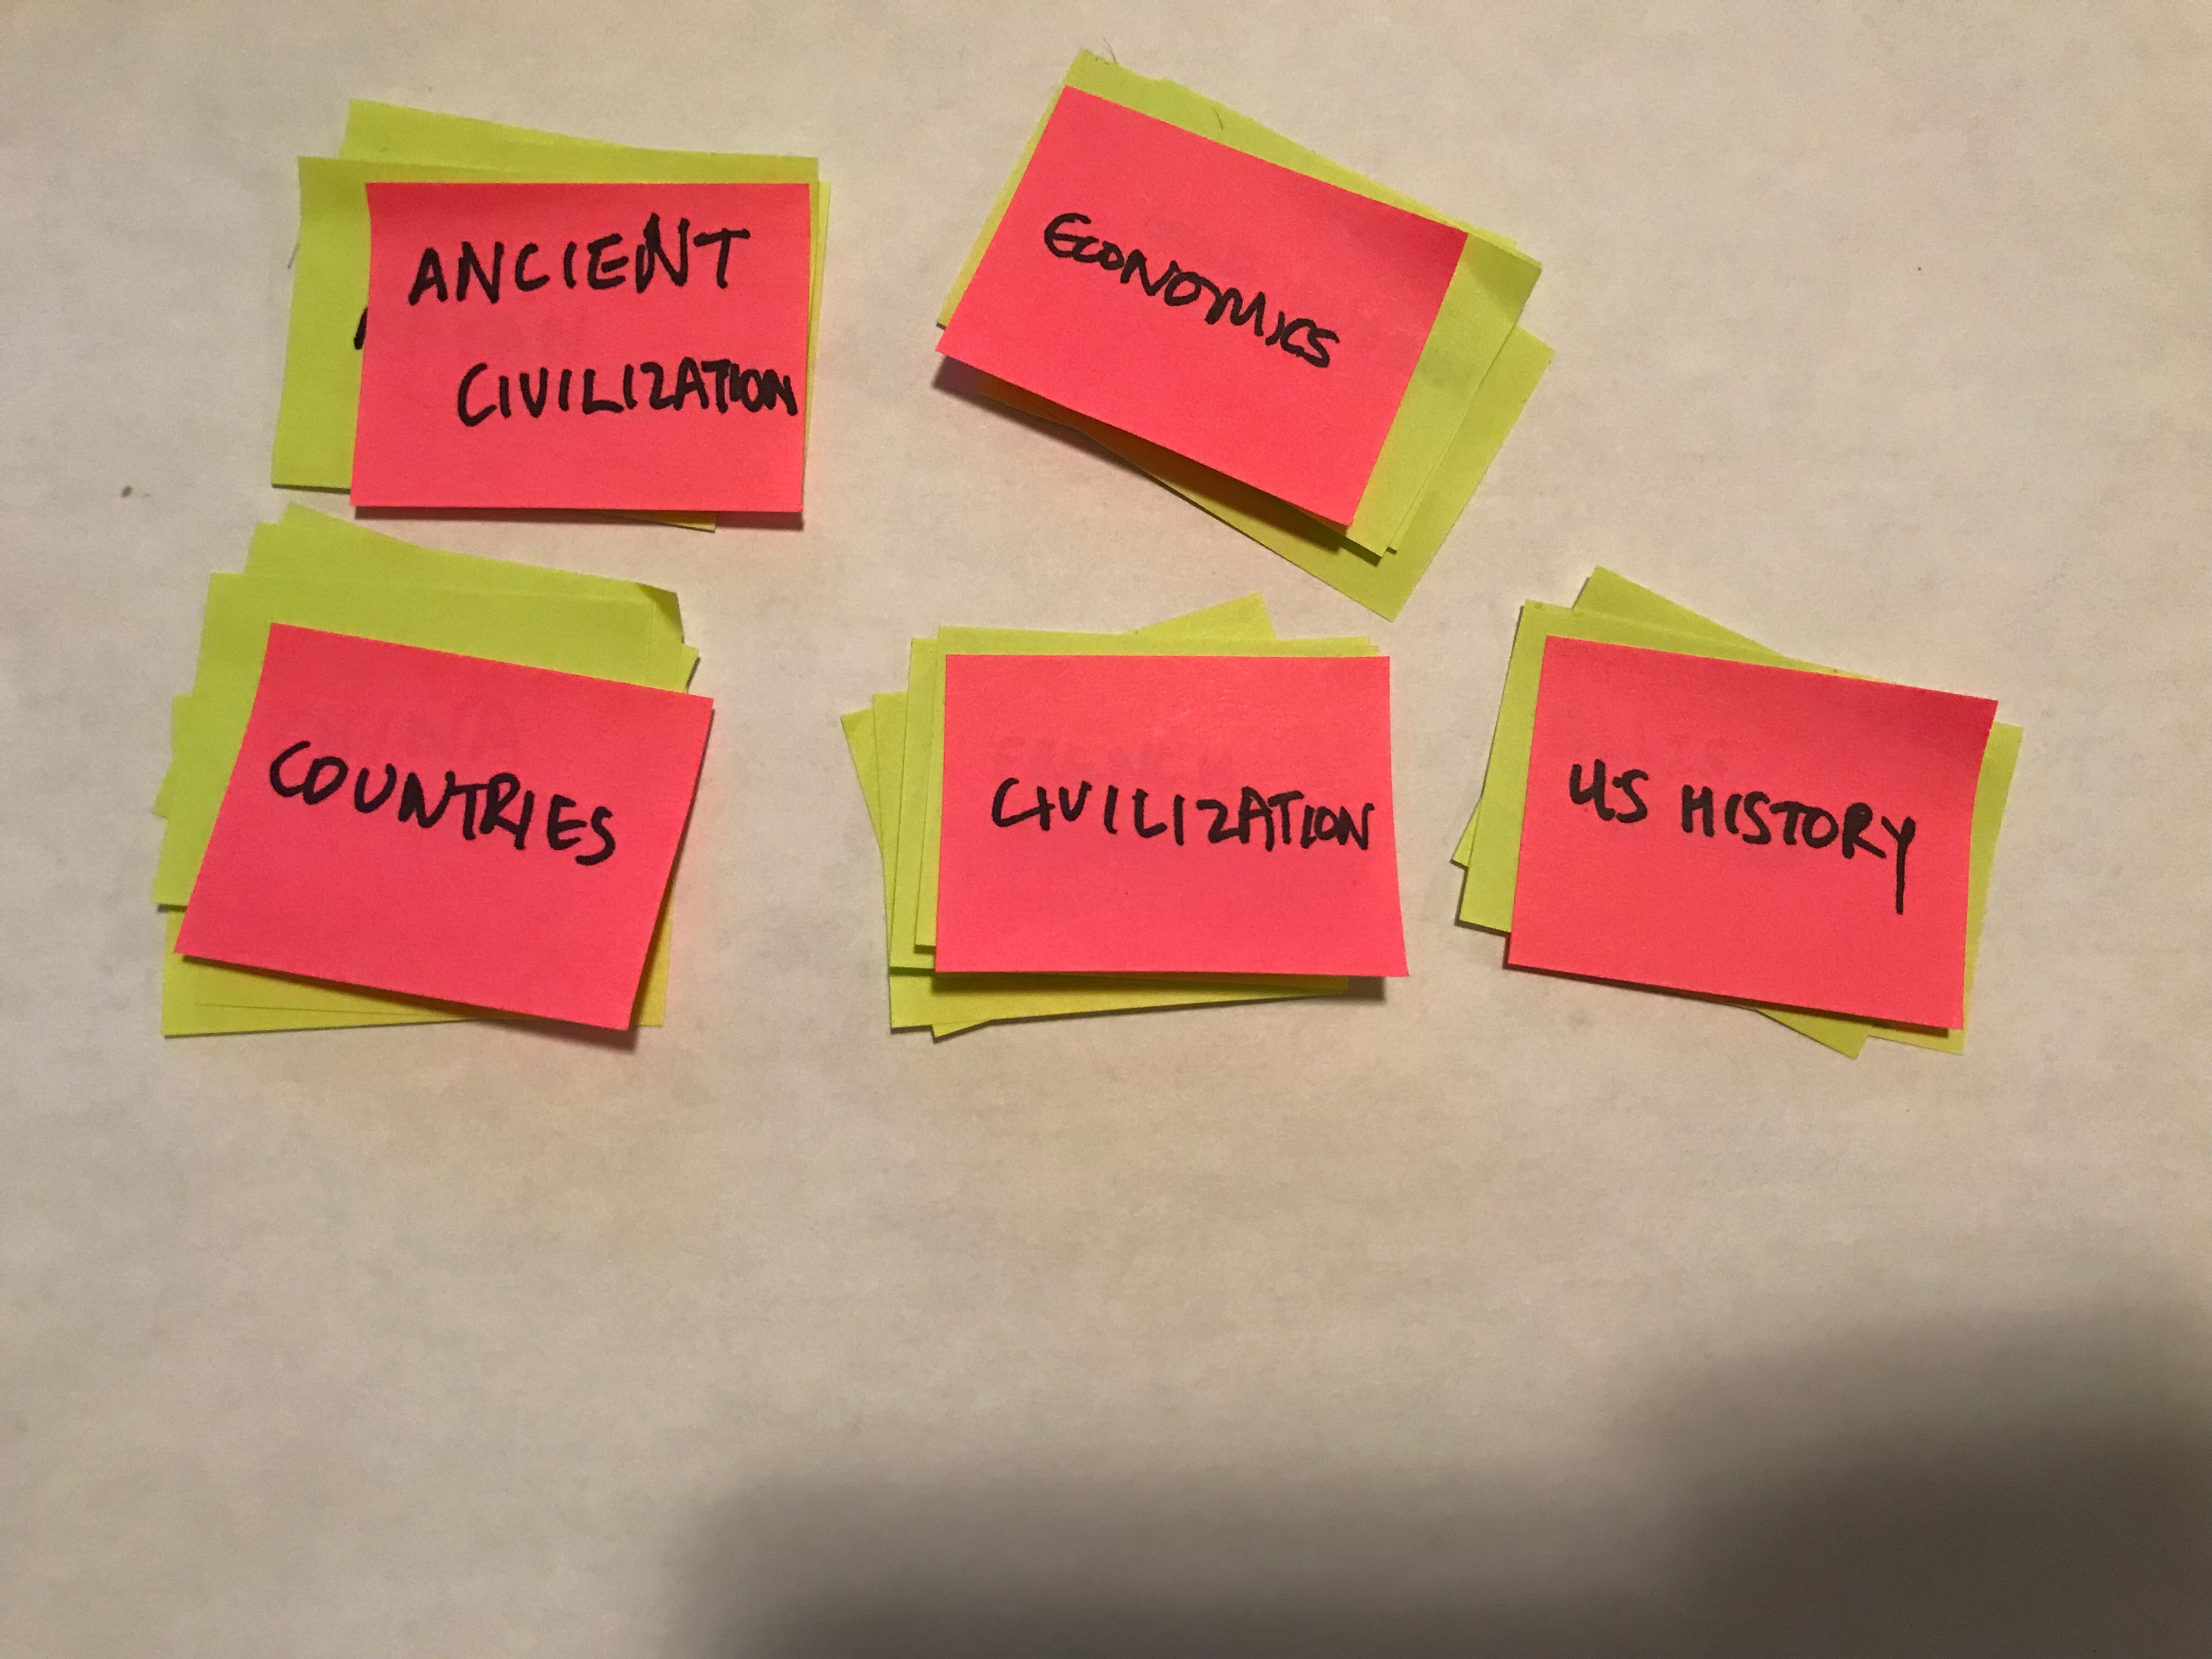 ANCIENT
CIVILIZATION
ECONOMICS
COUNTRIES
CIVILIZATION
US HISTORY